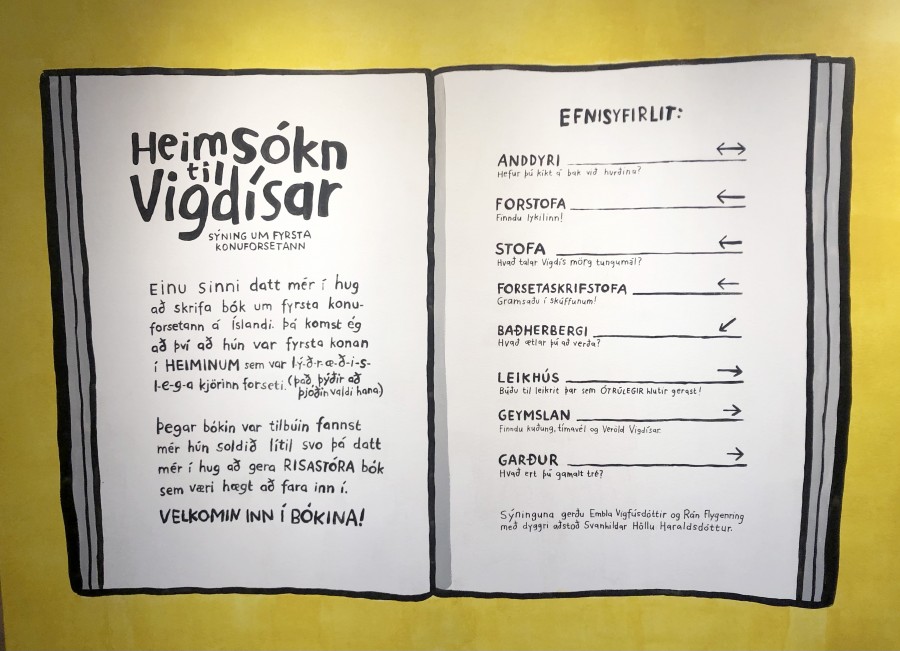 Heimsókn
til
Vigdísar
SÝNING UM FYRSTA
KONUFORSETANN
Einu sinni datt mér í hug
að skrifa bók um fyrsta konu-
forsetann á Íslandi. Þá komst ég
að því að hún var fyrsta konan
í HEIMINUM sem var l-ý-ð-r-æ-ð-i-s-
l-e-g-a kjörinn forseti. (það þýðir að
þjóðin valdi hana)
Þegar bókin var tilbúin fannst
mér hún soldið lítil svo þá datt
mér í hug að gera RISASTÓRA bók
sem væri hægt að fara inn í.
VELKOMIN INN Í BÓKINA!
EFNISYFIRLIT:
ANDDYRI ↔
Hefur þú kíkt á bak við hurðina?
FORSTOFA ←
Finndu lykilinn!
STOFA ←
Hvað talar Vigdís mörg tungumál?
FORSETASKRIFSTOFA ←
Gramsaðu í skúffunum!
BAÐHERBERGI ↙
Hvað ætlar þú að verða?
LEIKHÚS →
Búðu til leikrit þar sem ÓTRÚLEGIR hlutir gerast!
GEYMSLAN →
Finndu kuðung, tímavél og Veröld Vigdísar.
GARÐUR →
Hvað ert þú gamalt tré?
Sýninguna gerðu Embla Vigfúsdóttir og Rán Flygenring
með dyggri aðstoð Svanhildar Höllu Haraldsdóttur.